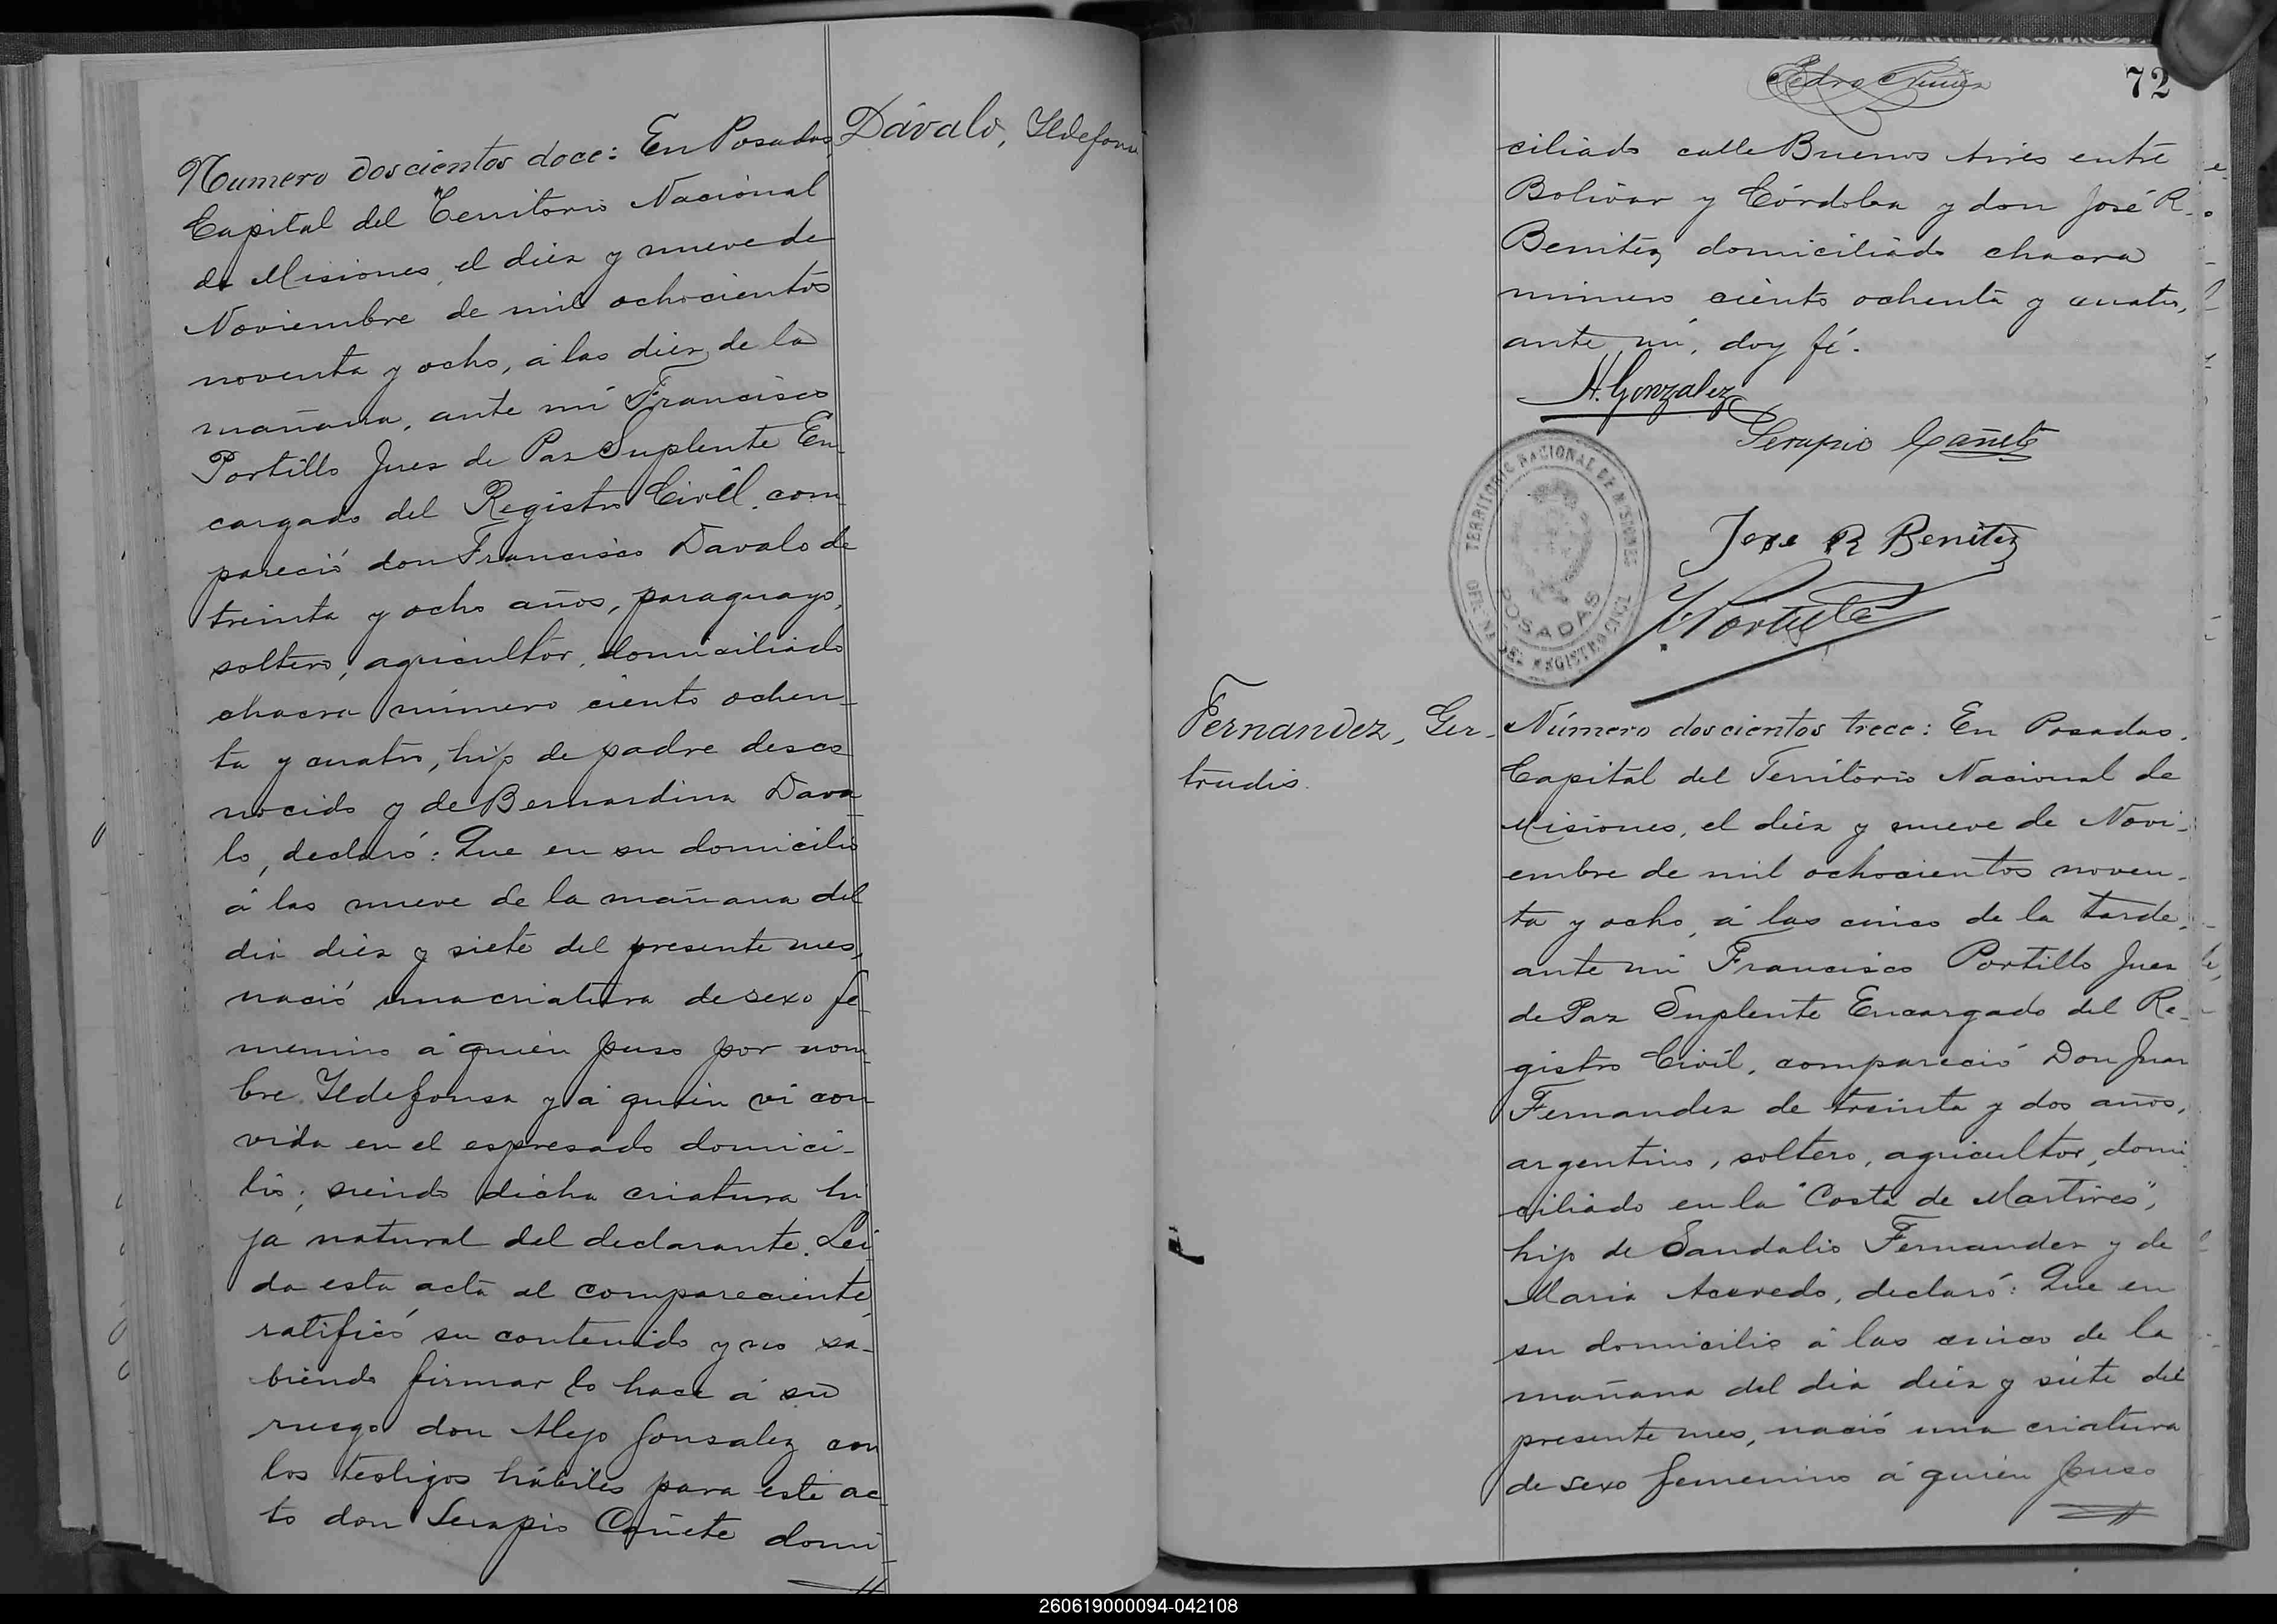 Dávalo, Ildefon
Numero doscientos doce: En Posadas,
Capital del Territorio Nacional
de Misiones, el diez y nueve de
Noviembre de mil ochocientos
noventa y ocho, á las diez de la
mañana, ante mí Francisco
Portillo Juez de Paz Suplente En
cargado del Registro Civil, com
pareció don Francisco Davalo de
treinta y ocho años, paraguayo,
soltero, agricultor, domiciliado
chacra número ciento ochen-
ta y cuatro, hijo de padre desco
nocido y de Bernardina Dava
lo, declaró: Que en su domicilio
á las nueve de la mañana del
dia diez y siete del presente mes,
nació una criatura de sexo fe-
menino á quien puso por nom-
bre Ildefonsa y á quien ví con
vida en el espresado domici-
lio; siendo dicha criatura hi
ja natural del declarante. Lei
da esta acta al compareciente,
ratificó su contenido y no sa-
biendo firmar lo hace á su
ruego don Alejo Gonzalez con
los testigos hábiles para este ac
to don Serapio Cañete domi-
72
Pedro Nuñez
ciliado calle Buenos Aires entre
Bolívar y Córdoba y don José R.
Benitez domiciliado chacra
número ciento ochenta y cuatro,
ante mí, doy fé.
A. Gonzalez
Serapio Cañete
Jose R Benitez
F. Portillo
TERRITORIO NACIONAL DE MISIONES
POSADAS
OFICINA DEL REGISTRO CIVIL
Fernandez, Ger-
trudis.
Número doscientos trece: En Posadas,
Capital del Territorio Nacional de
Misiones, el diez y nueve de Novi-
embre de mil ochocientos noven-
ta y ocho, á las cinco de la tarde,
ante mí Francisco Portillo Juez
de Paz Suplente Encargado del Re-
gistro Civil, compareció Don Juan
Fernandez de treinta y dos años,
argentino, soltero, agricultor, domi
ciliado en la "Costa de Martires",
hijo de Sandalio Fernandez y de
Maria Acevedo, declaró: Que en
su domicilio á las cinco de la
mañana del dia diez y siete del
presente mes, nació una criatura
de sexo femenino á quien puso
260619000094-042108